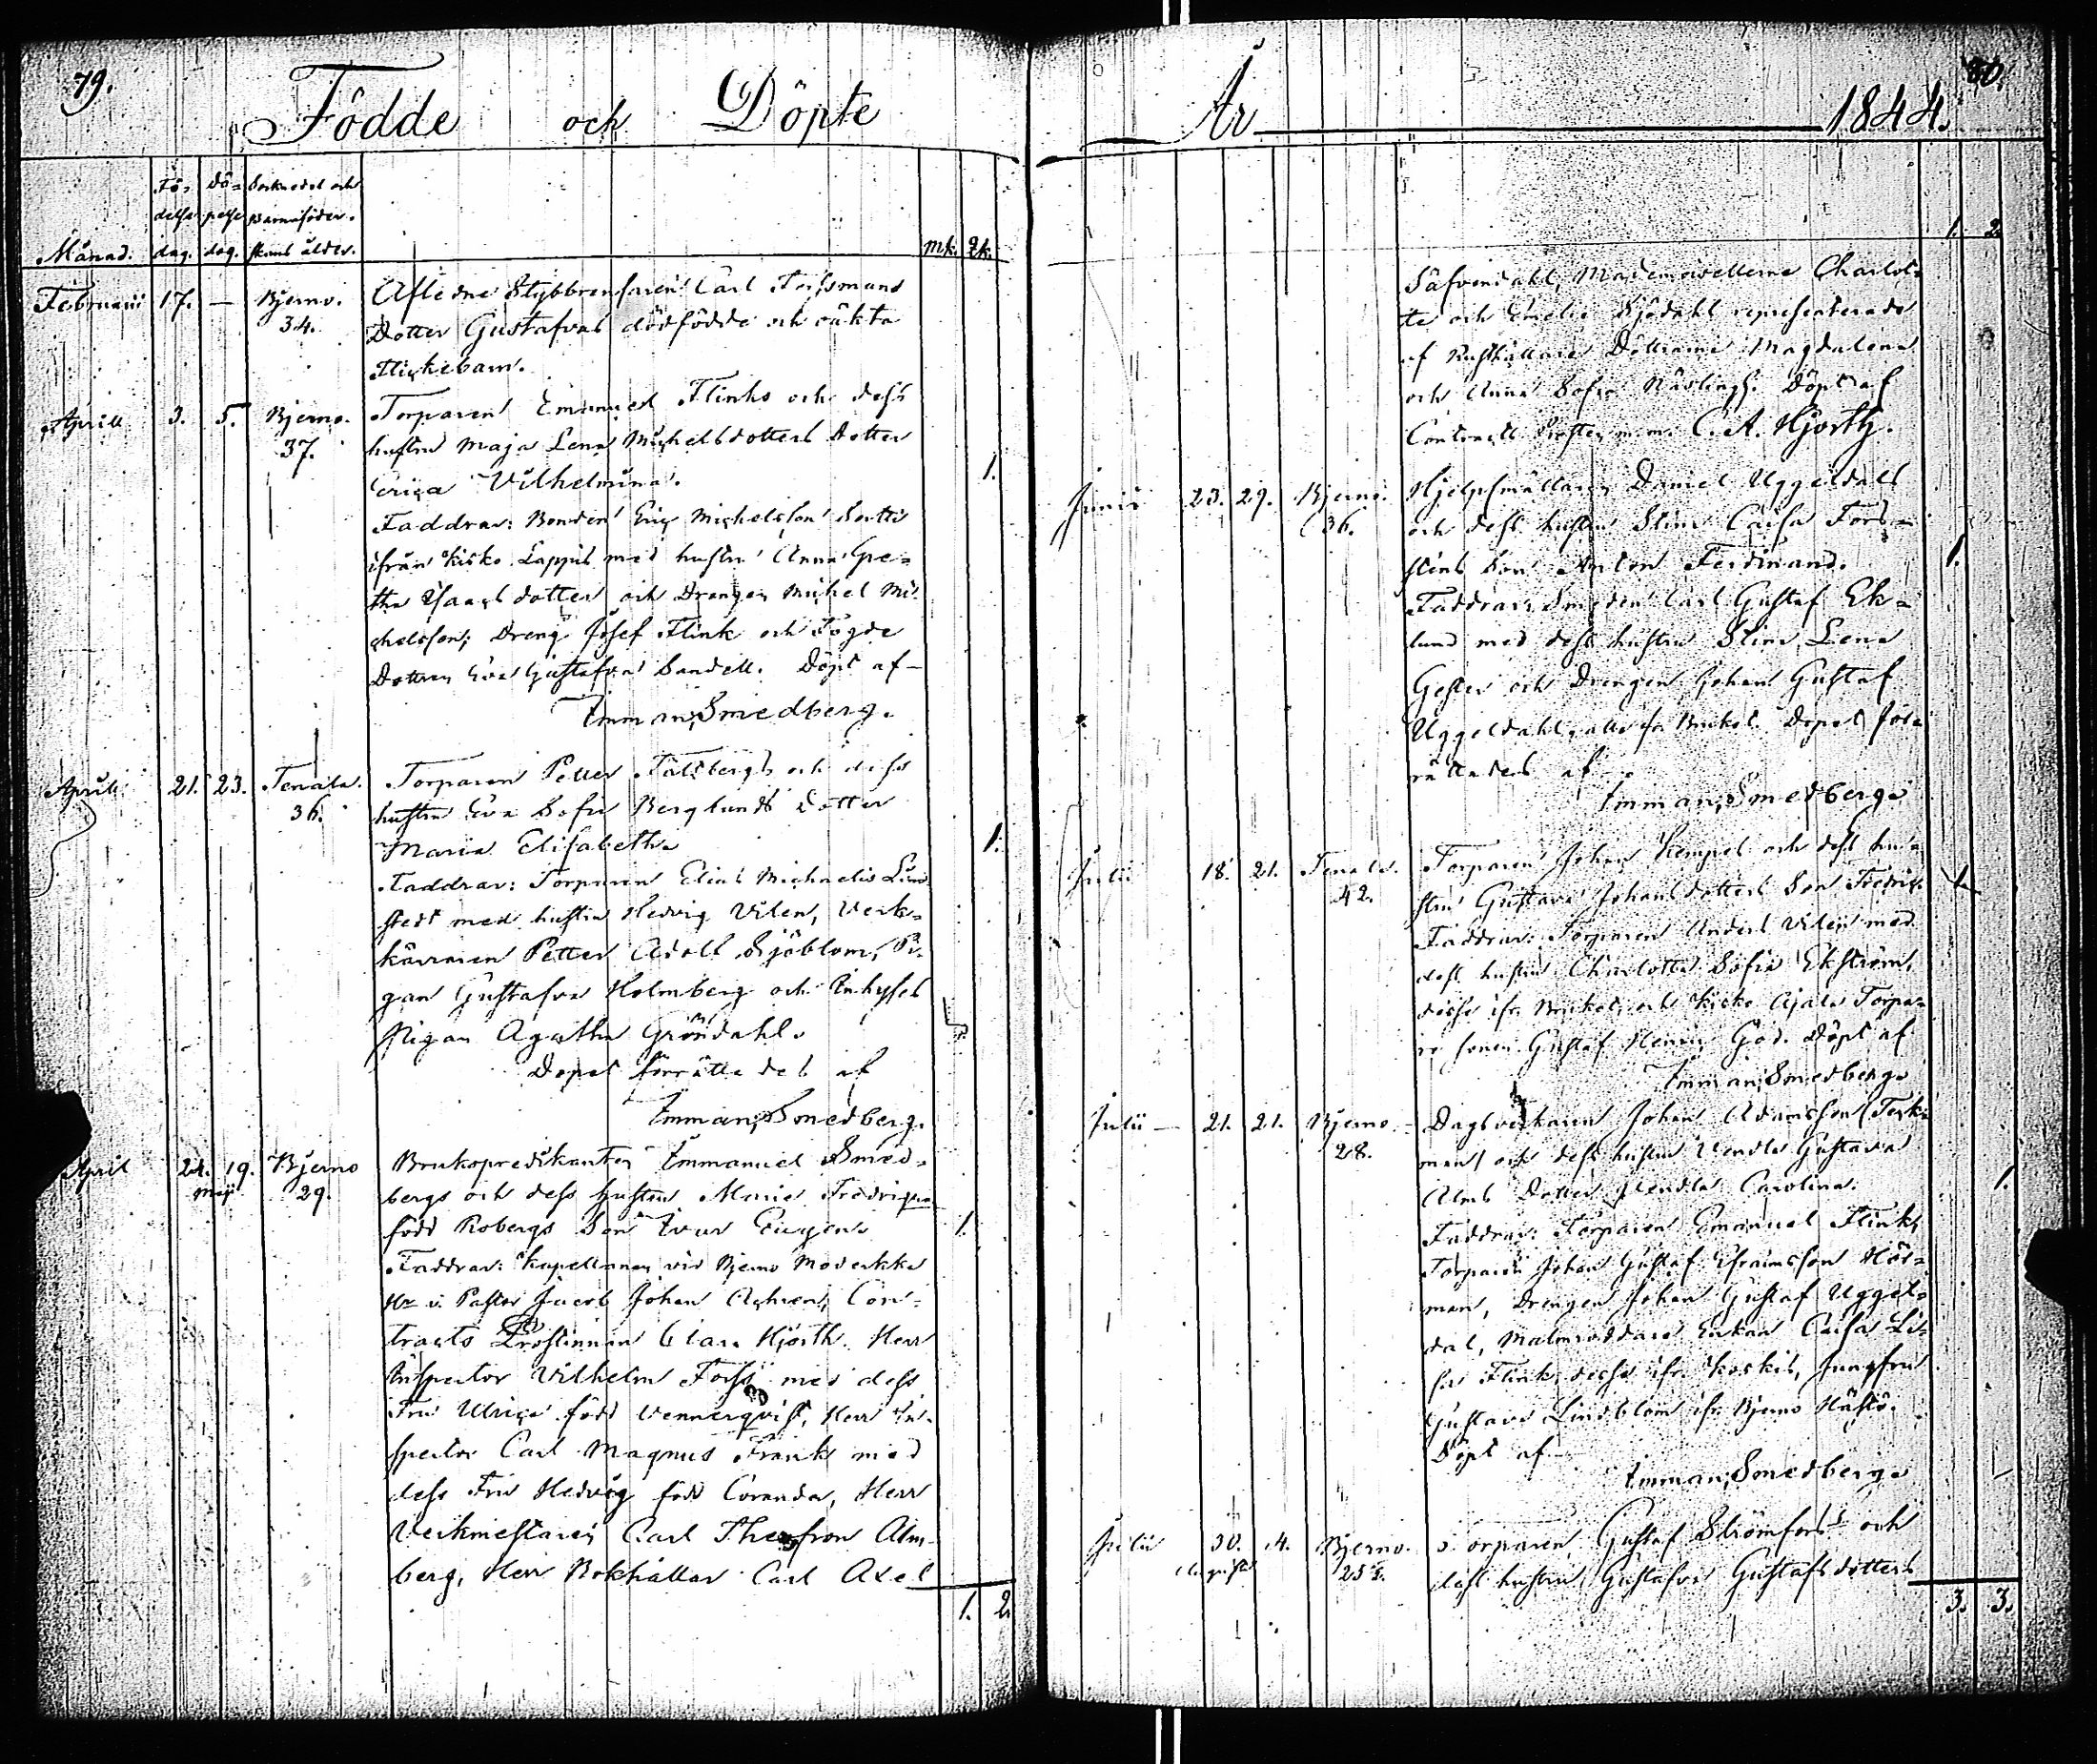 79.
Födde och Döpte
Fö- Dö- Sockn och
delse pelse Barnaföder-
Månad. dag. dag. skans ålder. mk. qk.
Februarii 17. — Bjerno. Aflidne Stybbrensaren Carl Forssmans
34. Dotter Gustafvas dödfödde och oäkta
Flickebarn.
Aprill 3. 5. Bjerno. Torparen Emanuel Flinks och dess
37. hustru Maja Lena Michelsdotters Dotter
Erica Vilhelmina. 1.
Faddrar: Bonden Eric Michelsson
ifrån Kisko Lappils med hustru Anna Gre-
tha Isaacs dotter och Drengen Michel Mi-
chelsson; Dreng Josef Flink och Fogde
Dottren Eva Gustafva Sandell. Döpt af
Imman; Smedberg.
Aprill 21. 23. Tenala. Torparen Petter Fältbergs och dess
36. hustru Eva Sofia Berglunds Dotter
Maria Elisabeth. 1.
Faddrar: Torparen Elias Michaelis Lind
stedt med hustru Hedvig Vilen, Verk-
kärraren Petter Adolf Sjöblom, Pi-
gan Gustafva Holmberg och Inhyses
pigan Agatha Gröndahl.
Dopet förrättades af
Imman; Smedberg.
April 24. 19. Bjerno Brukspredikanten Immanuel Smed-
Maji 29. bergs och dess hustru Maria Fredrique
född Robergs Son Ivar Eugen. 1.
Faddrar: Kapellanen vid Bjerno Moderkka
Hr v. Pastor Jacob Johan Achren, Con-
tracts Prostinnan Clara Hjorth. Herr
Inspector Vilhelm Forss med dess
Fru Ulrica född Vennerqvist, Herr In-
spector Carl Magnus Frank med
dess Fru Hedvig född Coranda, Herr
Verkmestaren Carl Theofron Alm-
berg, Herr Bokhållar Carl Axel
1. 2.
80.
År 1844.
1. 2
Säfvendahl, Mademoisellerne Charlot-
te och Emelie Sjödahl representerade
af Rusthållare Döttrarne Magdalena
och Anna Sofia Döpt af
Contracts Prosten m.m. C. A. Hjorth.
Junii 23. 29. Bjerno. Hjelpsmältaren Daniel Uggeldals
36. och dess hustru Stina Caisa Fors-
stens Son Anton Ferdinand. 1.
Faddrar: Smeden Carl Gustaf Ek-
lund med dess hustru Stina Lena
Gester och Drengen Johan Gustaf
Uggeldahl, alla fr. Bruket. Dopet för-
rättades af
Imman; Smedberg.
Julii 18. 21. Tenala. Torparen Johan Kempes och dess hu-
42. stru Gustava Johansdotters Son Fredrik 1.
Faddrar: Torparen Anders Vilen med
dess hustru Charlotta Sofia Ekström,
desse ifr. Bruket och Kisko Ajala Torpa-
re sonen Gustaf Henric God. Döpt af
Imman; Smedberg.
Julii 21. 21. Bjerno. Dagsverkaren Johan Adamsson (Tesk-
28. man) och dess hustru Vendla Gustava
Alms Dotter Vendla Carolina. 1.
Faddrar: Torparen Emanuel Flink,
Torparen Johan Gustaf Efraimsson Hör-
man, Drengen Johan Gustaf Uggel-
dal, Malmroddare Enkan Caisa Li-
sa Flink desse ifr. Koskis, Jungfru
Gustava Lindblom ifr. Bjerno Hästö.
Döpt af
Imman; Smedberg.
Julii 30. 4. Bjerno. Torparen Gustaf Strömfors och
Augusti 25. dess hustru Gustafva Gustafs dotters
3. 3.